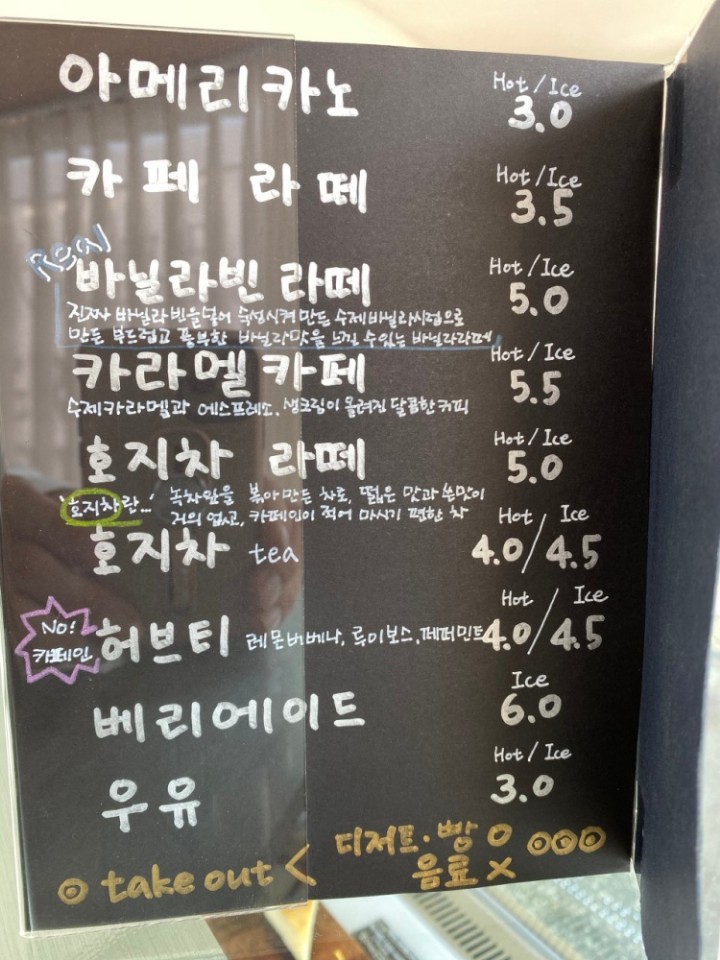 아메리카노 Hot / Ice 3.0
카페 라떼 Hot / Ice 3.5
Real
바닐라빈 라떼 Hot / Ice 5.0
진짜 바닐라 빈을 넣어 숙성시켜 만든 수제 바닐라시럽으로
만든 부드럽고 풍부한 바닐라맛을 느낄 수있는 바닐라라떼
카라멜카페 Hot / Ice 5.5
수제카라멜과 에스프레소, 생크림이 올려진 달콤한 커피
호지차 라떼 Hot / Ice 5.0
'호지차란...' 녹차잎을 볶아 만든 차로, 떫은 맛과 쓴맛이
거의 없고, 카페인이 적어 마시기 편한 차
호지차 tea Hot 4.0 / Ice 4.5
No!
카페인
허브티 레몬버베나, 루이보스, 페퍼민트 Hot 4.0 / Ice 4.5
베리에이드 Ice 6.0
우유 Hot / Ice 3.0
take out < 디저트·빵 O
음료 X